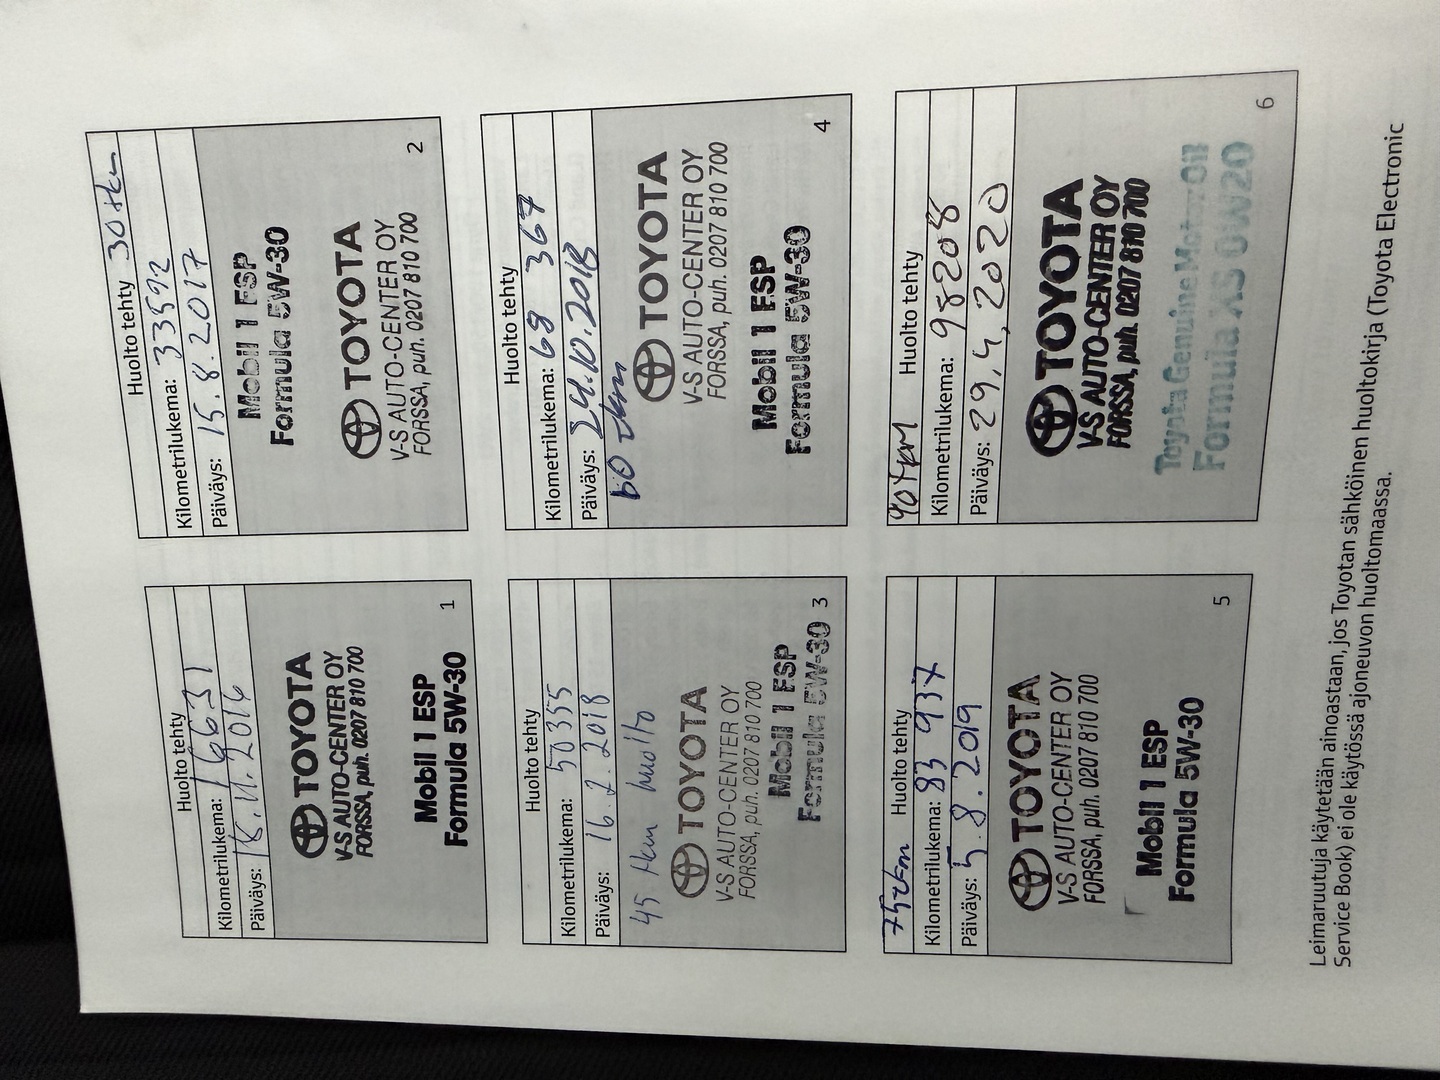 Huolto tehty
Kilometrilukema: 16631
Päiväys: 15.11.2016
TOYOTA
V-S AUTO-CENTER OY
FORSSA, puh. 0207 810 700
Mobil 1 ESP
Formula 5W-30
1
Huolto tehty 30 tkm
Kilometrilukema: 33592
Päiväys: 15.8.2017
Mobil 1 ESP
Formula 5W-30
TOYOTA
V-S AUTO-CENTER OY
FORSSA, puh. 0207 810 700
2
Huolto tehty
Kilometrilukema: 50355
Päiväys: 16.2.2018
45 tkm huolto
TOYOTA
V-S AUTO-CENTER OY
FORSSA, puh. 0207 810 700
Mobil 1 ESP
Formula 5W-30
3
Huolto tehty
Kilometrilukema: 68 367
Päiväys: 24.10.2018
60 tkm
TOYOTA
V-S AUTO-CENTER OY
FORSSA, puh. 0207 810 700
Mobil 1 ESP
Formula 5W-30
4
75tkm Huolto tehty
Kilometrilukema: 83 937
Päiväys: 5.8.2019
TOYOTA
V-S AUTO-CENTER OY
FORSSA, puh. 0207 810 700
Mobil 1 ESP
Formula 5W-30
5
90tkm Huolto tehty
Kilometrilukema: 98208
Päiväys: 29.4.2020
TOYOTA
V-S AUTO-CENTER OY
FORSSA, puh. 0207 810 700
Toyota Genuine Motor Oil
Formula XS 0W20
6
Leimaruutuja käytetään ainoastaan, jos Toyotan sähköinen huoltokirja (Toyota Electronic
Service Book) ei ole käytössä ajoneuvon huoltomaassa.